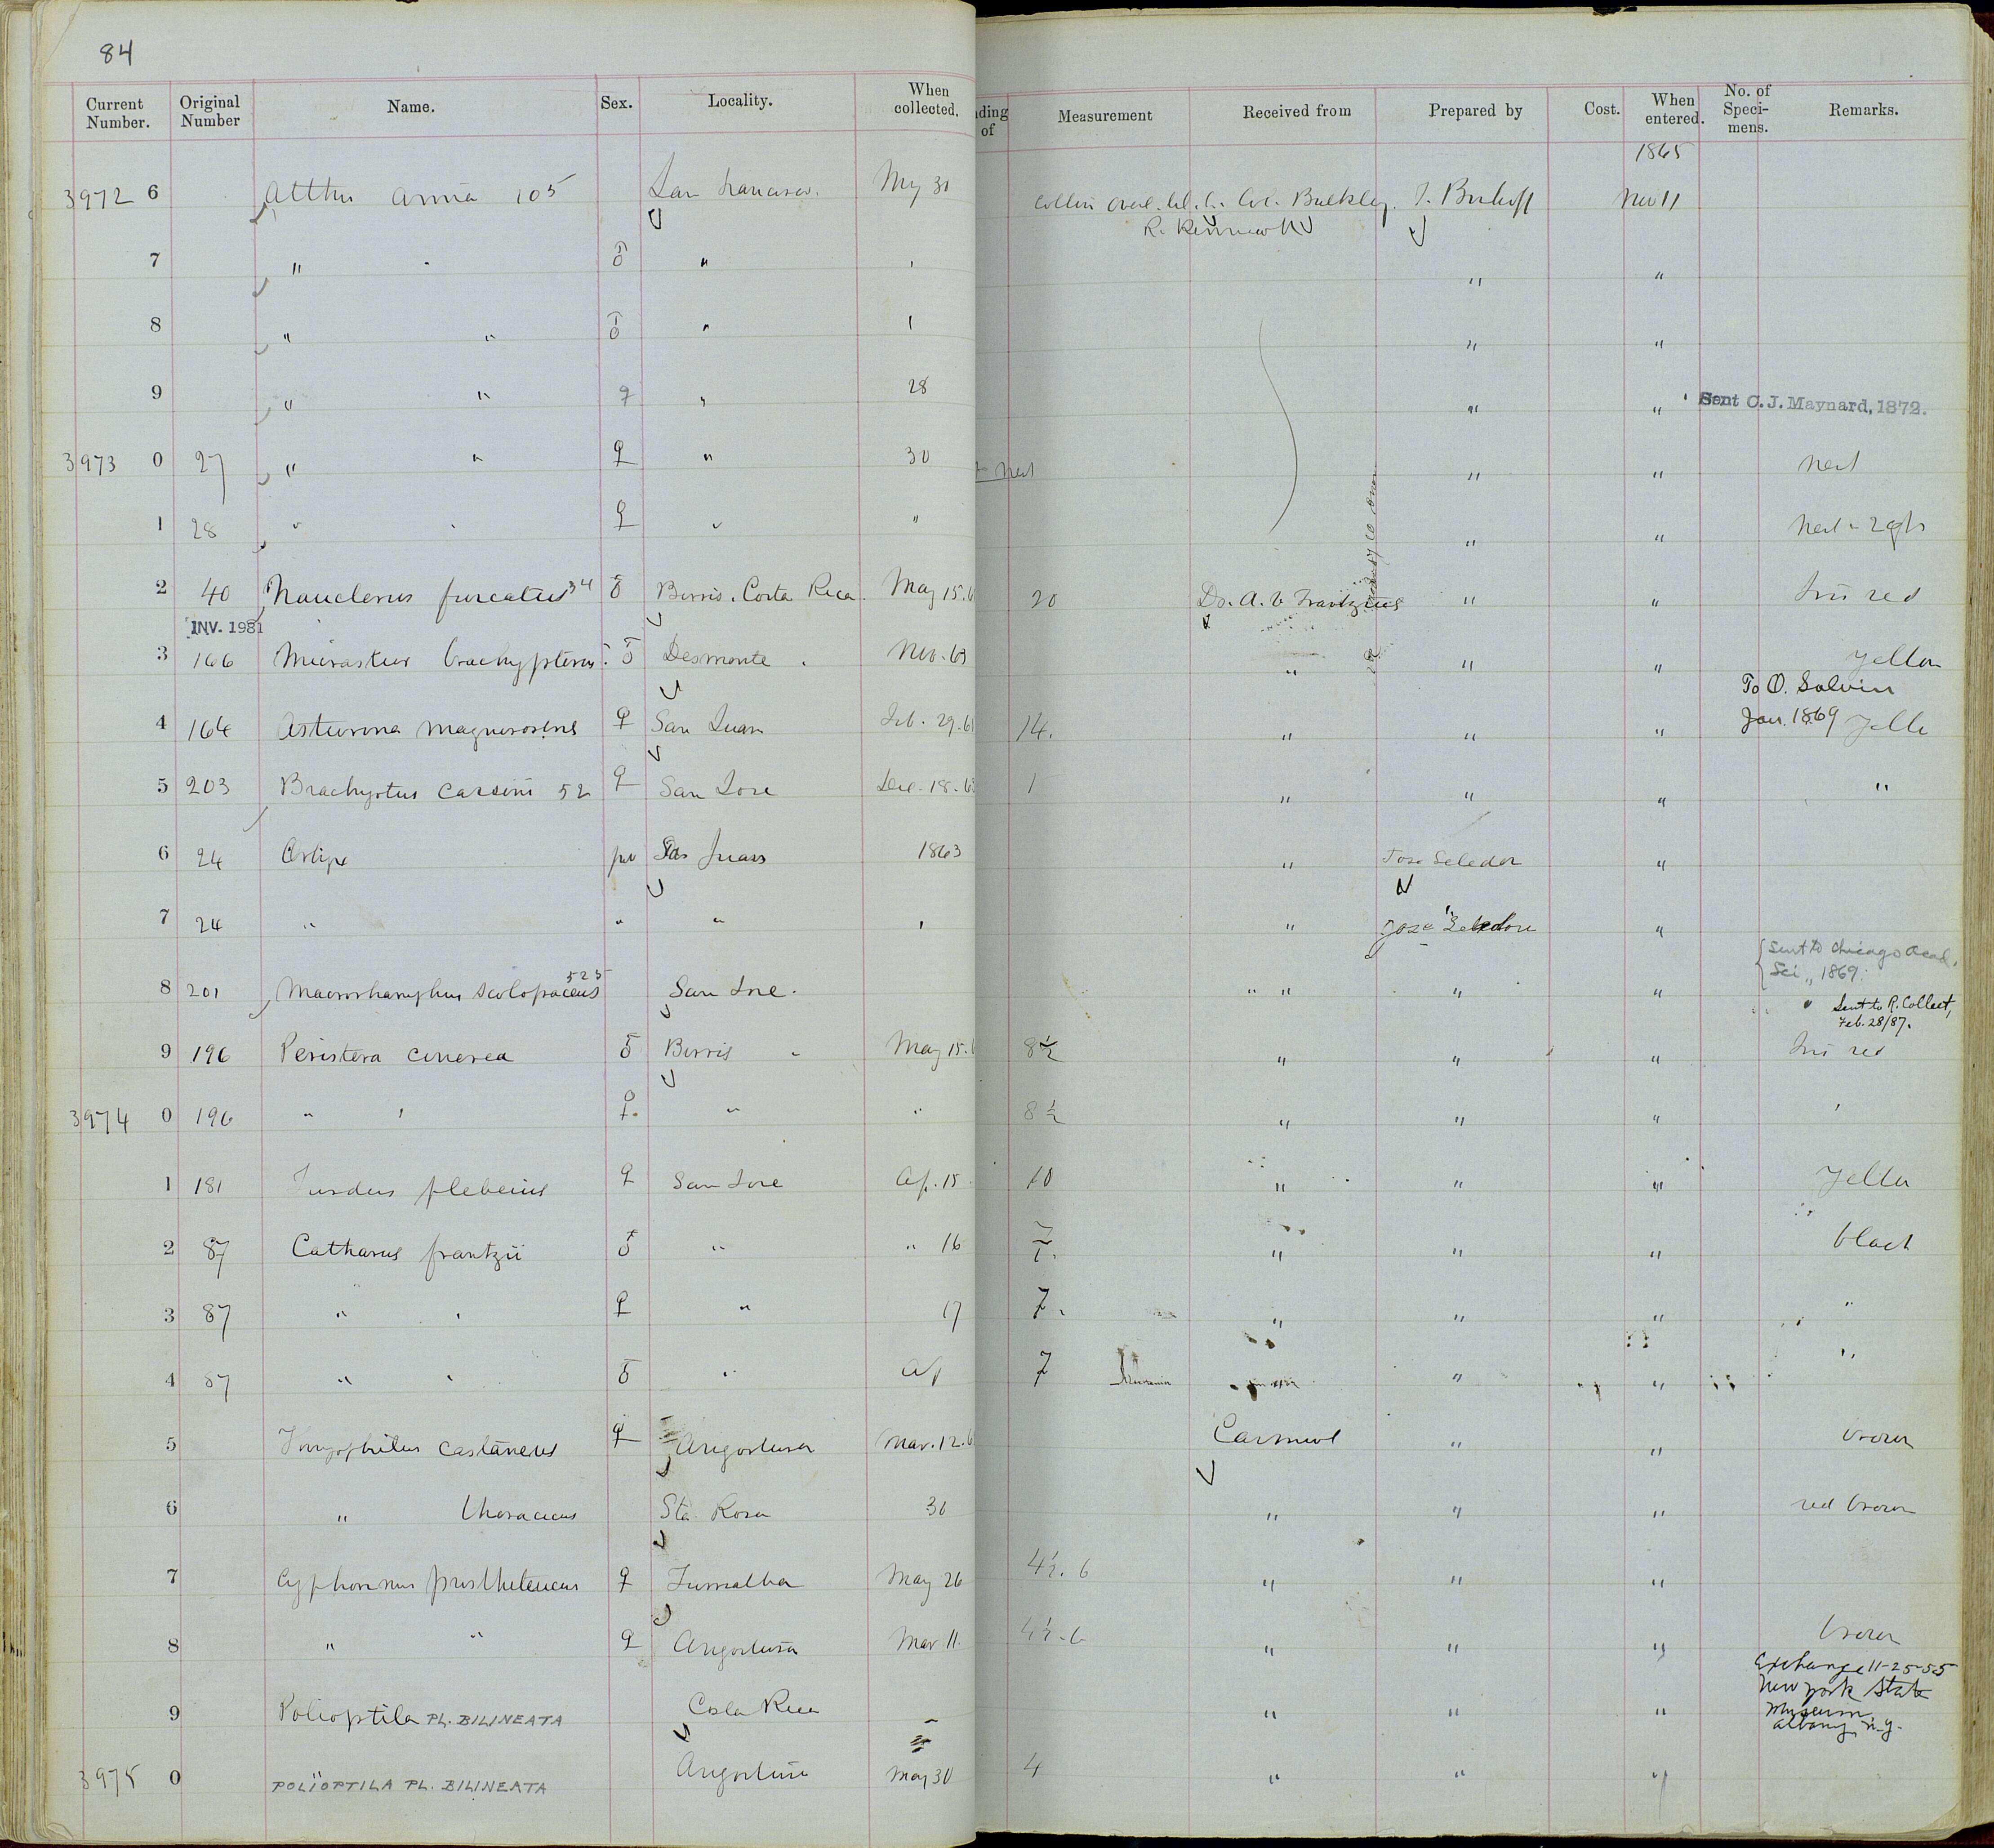 84
Current Number. Original Number Name. Sex. Locality. When collected. ding of Measurement Received from Prepared by Cost. When entered. No. of Speci-mens. Remarks.
1865
3972 6 Atthis anna 105 San Francisco. May 30 Collins Overl. Col. Bulkley. F. Bischoff Nov 11
R. Kennicott
7 " " ♂ " " "
8 " " ♂ " " "
9 " " ♀ " 28 " " Sent C. J. Maynard, 1872.
3973 0 27 " " ♀ " 30 Nest " " Nest
1 28 " " ♀ " " " " Nest
2 40 Nauclerus furcatus 34 ♂ Birris. Costa Rica May 15. 20 Dr. A. v Frantzius " " Iris red
INV. 1981
3 166 Micrastur brachypterus. ♂ Desmonte. Nov. 63 " " " yellow
4 164 Asturina magnirostris ♀ San Juan Feb. 29. 14. " " " To O. Salvin Jan. 1869
5 203 Brachyotus cassini 52 ♀ San Jose Dec. 18. 1 " " " "
6 24 Ortyx juv San Juan 1863 " Jose Zeledon "
7 24 " " " " " Jose Zeledon "
8 201 Macroramphus scolopaceus 525 San Jose. " " " " Sent to Chicago Acad. Sci., 1869.
" Sent to R. Collett, Feb. 28/87.
9 196 Peristera cinerea ♂ Birris " May 15. 8½ " " " Iris red
3974 0 196 " " ♀. " " 8½ " " " "
1 181 Turdus plebeius ♀ San Jose Ap. 15 10 " " " yellow
2 87 Catharus frantzii ♂ " " 16 7. " " " black
3 87 " " ♀ " 17 7. " " " "
4 87 " " ♂ " Ap 7 " " " "
5 Thryophilus castaneus ♀ Angostura Mar. 12. Carmiol " " brown
6 " thoracicus Sta. Rosa 30 " " " red brown
7 Cyphorinus ♀ Turrialba May 26 4½. 6 " " "
8 " " ♀ Angostura Mar 11. 4½. 6 " " " brown
9 Polioptila PL. BILINEATA Costa Rica " " " Exchange 11-25-55
New York State
Museum
Albany, N.Y.
3975 0 POLIOPTILA PL. BILINEATA Angostura May 30 4 " " "